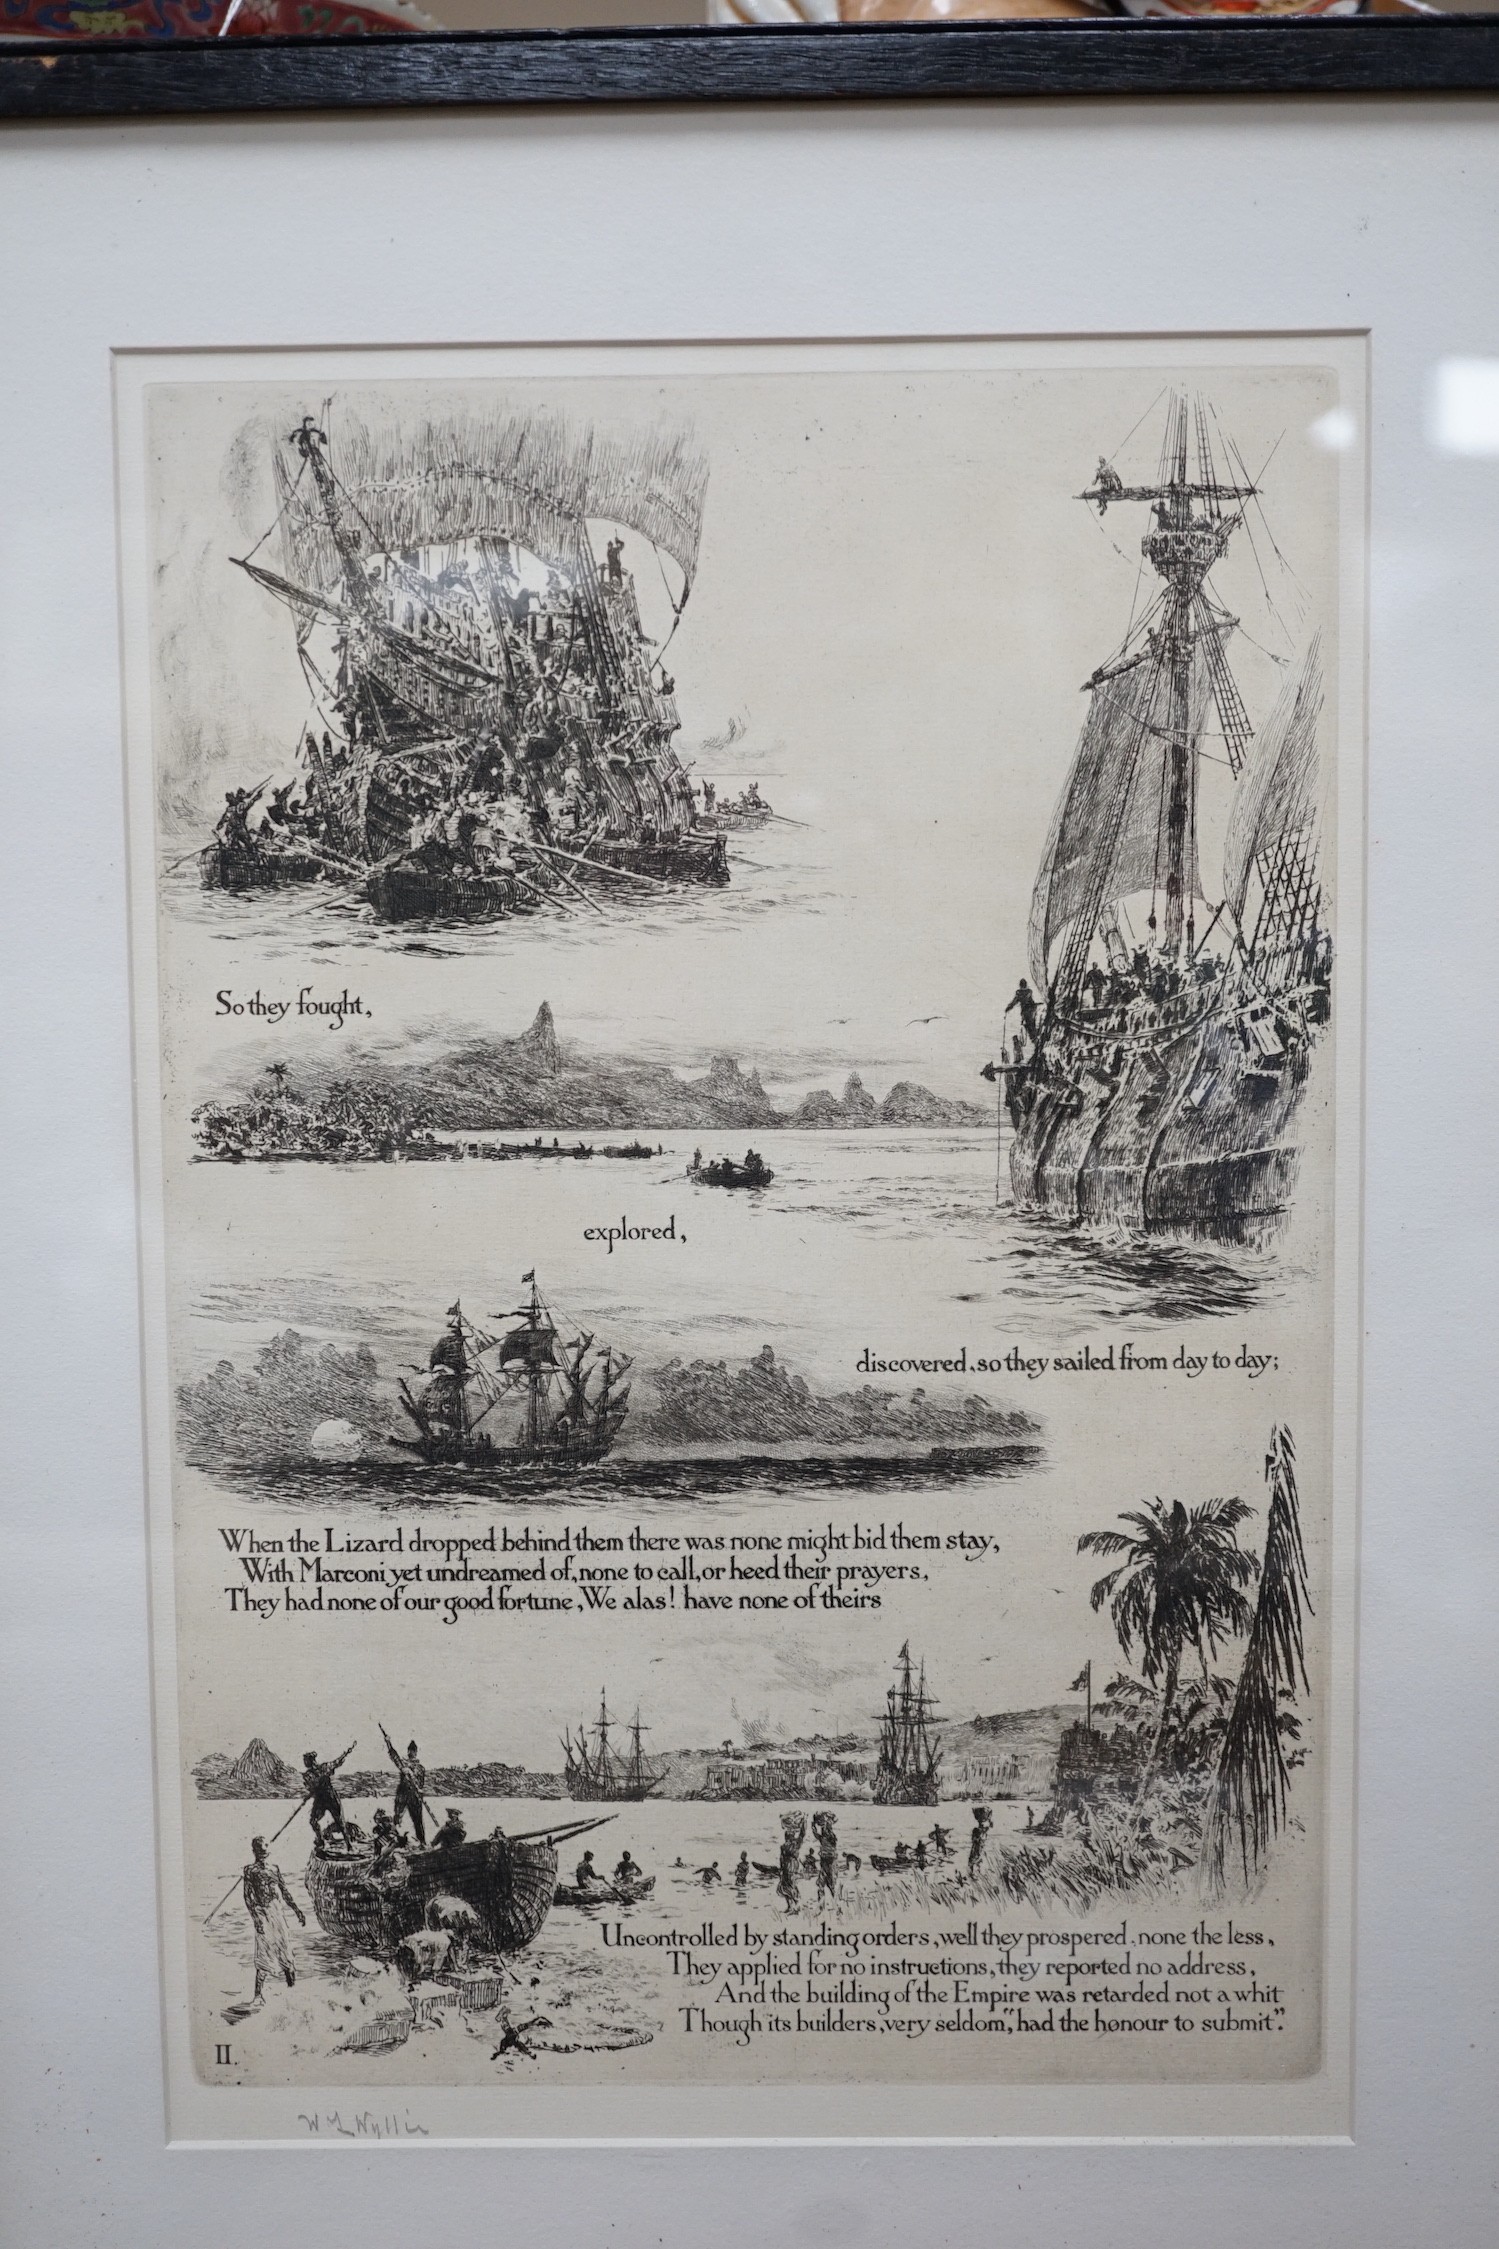 So they fought,
explored,
discovered, so they sailed from day to day;
When the Lizard dropped behind them there was none might bid them stay,
With Marconi yet undreamed of, none to call, or heed their prayers,
They had none of our good fortune, We alas! have none of theirs
Uncontrolled by standing orders, well they prospered, none the less,
They applied for no instructions, they reported no address,
And the building of the Empire was retarded not a whit
Though its builders, very seldom, "had the honour to submit".
II.
W L Wyllie